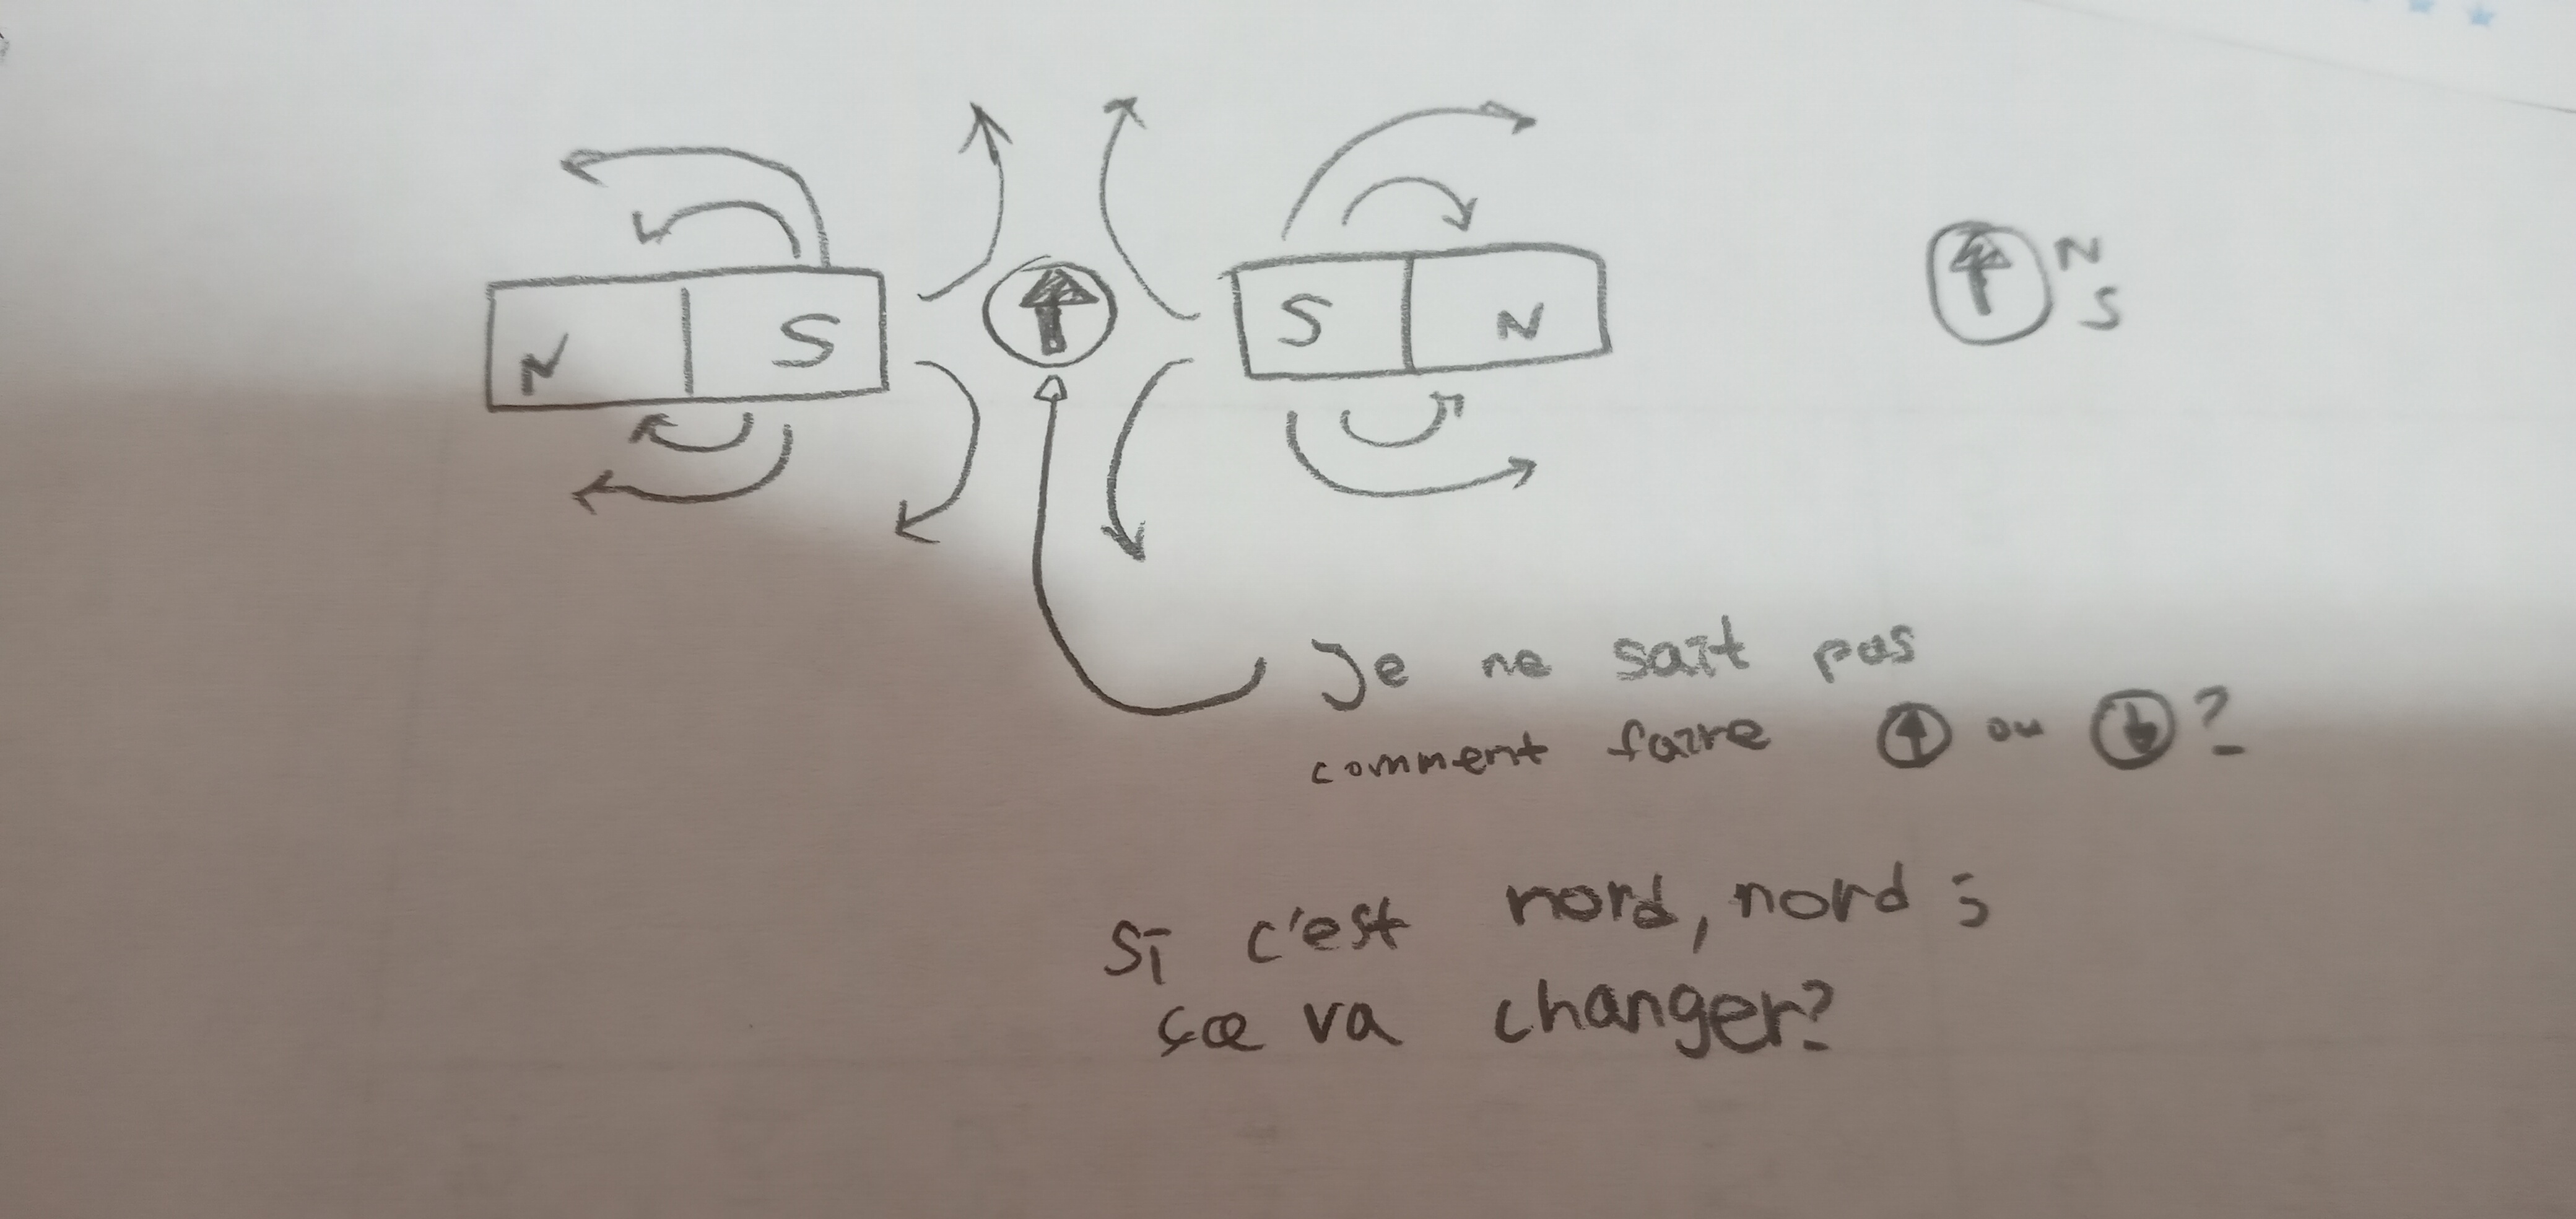 N S
S N
N
S
Je ne sait pas
comment faire ou ?
Si c'est nord, nord ;
ça va changer?